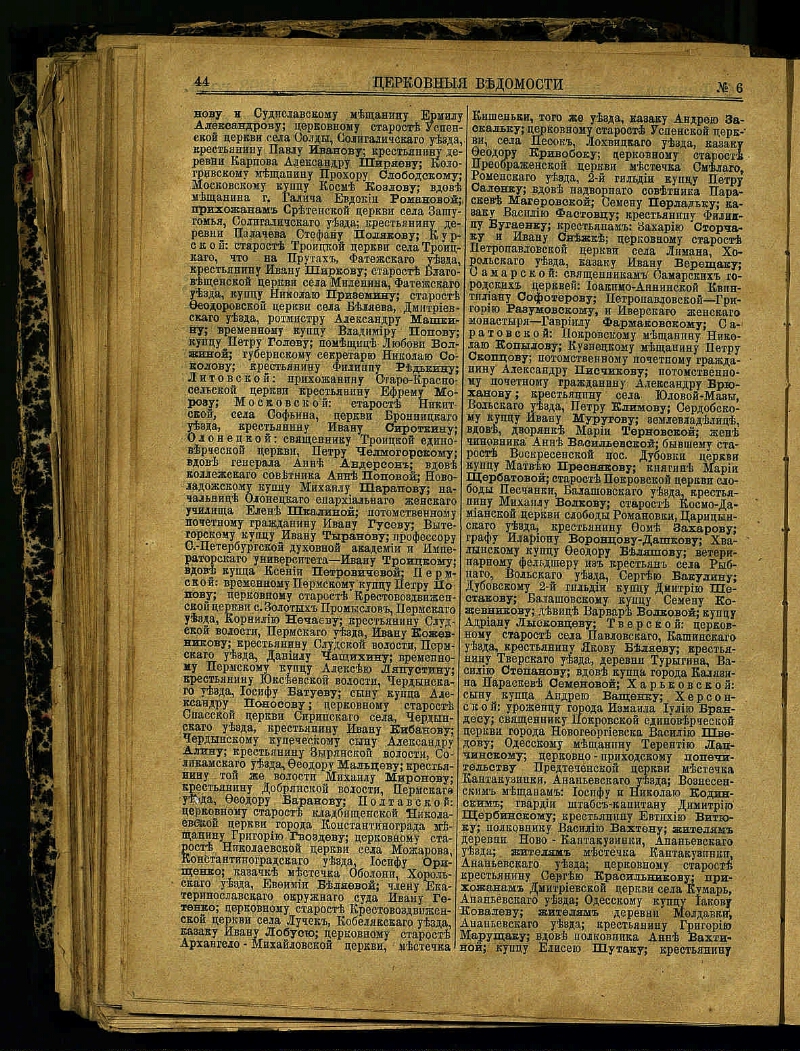 44
ЦЕРКОВНЫЯ ВѢДОМОСТИ
№ 6
нову и Судиславскому мѣщанину Ермилу
Александрову; церковному старостѣ Успен-
ской церкви села Солды, Солигаличскаго уѣзда,
крестьянину Павлу Иванову; крестьянину де-
ревни Карпова Александру Ширяеву; Коло-
гривскому мѣщанину Прохору Слободскому;
Московскому купцу Космѣ Козлову; вдовѣ
мѣщанина г. Галича Евдокіи Романовой;
прихожанамъ Срѣтенской церкви села Зашу-
гомья, Солигаличскаго уѣзда; крестьянину де-
ревни Палачева Стефану Полякову; Кур-
ской: старостѣ Троицкой церкви села Троиц-
каго, что на Прутахъ, Фатежскаго уѣзда,
крестьянину Ивану Шаркову; старостѣ Благо-
вѣщенской церкви села Миленина, Фатежскаго
уѣзда, купцу Николаю Привемину; старостѣ
Ѳеодоровской церкви села Бѣляева, Дмитріев-
скаго уѣзда, ротмистру Александру Машки-
ну; временному купцу Владиміру Попову;
купцу Петру Голеву; помѣщицѣ Любови Вол-
жиной; губернскому секретарю Николаю Со-
колову; крестьянину Филиппу Рѣдькину;
Литовской: прихожанину Старо-Красно-
сельской церкви крестьянину Ефрему Мо-
розу; Московской: старостѣ Никит-
ской, села Софьина, церкви Бронницкаго
уѣзда, крестьянину Ивану Сироткину;
Олонецкой: священнику Троицкой едино-
вѣрческой церкви, Петру Челмогорскому;
вдовѣ генерала Аннѣ Андерсонъ; вдовѣ
коллежскаго совѣтника Аннѣ Поповой; Ново-
ладожскому купцу Михаилу Шарапову; на-
чальницѣ Олонецкаго епархіальнаго женскаго
училища Еленѣ Шкалиной; потомственному
почетному гражданину Ивану Гусеву; Выте-
горскому купцу Ивану Тыранову; профессору
С.-Петербургской духовной академіи и Импе-
раторскаго университета—Ивану Троицкому;
вдовѣ купца Ксеніи Петровичевой; Перм-
ской: временному Пермскому купцу Петру По-
пову; церковному старостѣ Крестовоздвижен-
ской церкви с. Золотыхъ Промысловъ, Пермскаго
уѣзда, Корнилію Нечаеву; крестьянину Слуд-
ской волости, Пермскаго уѣзда, Ивану Кожев-
никову; крестьянину Слудской волости, Перм-
скаго уѣзда, Даніилу Чащихину; временно-
му Пермскому купцу Алексѣю Ляпустину;
крестьянину Юксѣевской волости, Чердынска-
го уѣзда, Іосифу Батуеву; сыну купца Але-
ксандру Поносову; церковному старостѣ
Спасской церкви Сиринскаго села, Чердын-
скаго уѣзда, крестьянину Ивану Кибанову;
Чердынскому купеческому сыну Александру
Алину; крестьянину Зырянской волости, Со-
ликамскаго уѣзда, Ѳеодору Мальцеву; крестья-
нину той же волости Михаилу Миронову;
крестьянину Добрянской волости, Пермскаго
уѣзда, Ѳеодору Варанову; Полтавской:
церковному старостѣ кладбищенской Никола-
евской церкви города Константинограда мѣ-
щанину Григорію Гвоздеву; церковному ста-
ростѣ Николаевской церкви села Можарова,
Константиноградскаго уѣзда, Іосифу Ори-
щенко; казачкѣ мѣстечка Оболони, Хороль-
скаго уѣзда, Евѳиміи Бѣляевой; члену Ека-
теринославскаго окружнаго суда Ивану Ге-
тенко; церковному старостѣ Крестовоздвижен-
ской церкви села Лучекъ, Кобелякскаго уѣзда,
казаку Ивану Лобусю; церковному старостѣ
Архангело-Михайловской церкви, мѣстечка
Кишеньки, того же уѣзда, казаку Андрею За-
скальку; церковному старостѣ Успенской церк-
ви, села Песокъ, Лохвицкаго уѣзда, казаку
Ѳеодору Кривобоку; церковному старостѣ
Преображенской церкви мѣстечка Смѣлаго,
Роменскаго уѣзда, 2-й гильдіи купцу Петру
Саленку; вдовѣ надворнаго совѣтника Пара-
скевѣ Магеровской; Семену Перладьку; ка-
заку Василію Фастовцу; крестьянину Филип-
пу Бугаенку; крестьянамъ: Захарію Сторча-
ку и Ивану Снѣжкѣ; церковному старостѣ
Петропавловской церкви села Лимана, Хо-
рольскаго уѣзда, казаку Ивану Верещаку;
Самарской: священникамъ Самарскихъ го-
родскихъ церквей: Іоакимо-Аннинской Квин-
тиліану Софотерову; Петропавловской—Гри-
горію Разумовскому, и Иверскаго женскаго
монастыря—Гавріилу Фармаковскому; Са-
ратовской: Покровскому мѣщанину Нико-
лаю Копылову; Кузнецкому мѣщанину Петру
Скопцову; потомственному почетному гражда-
нину Александру Писчикову; потомственно-
му почетному гражданину Александру Врю-
ханову; крестьянину села Юловой-Мазы,
Вольскаго уѣзда, Петру Климову; Сердобско-
му купцу Ивану Муругову; землевладѣлицѣ,
вдовѣ, дворянкѣ Маріи Терновской; женѣ
чиновника Аннѣ Васильевской; бывшему ста-
ростѣ Воскресенской пос. Дубовки церкви
купцу Матвѣю Прѣснякову; княгинѣ Маріи
Щербатовой; старостѣ Покровской церкви сло-
боды Песчанки, Балашовскаго уѣзда, крестья-
нину Михаилу Волкову; старостѣ Космо-Да-
міанской церкви слободы Романовки, Царицын-
скаго уѣзда, крестьянину Ѳомѣ Захарову;
графу Иларіону Воронцову-Дашкову; Хва-
лынскому купцу Ѳеодору Бѣляшову; ветери-
нарному фельдшеру изъ крестьянъ села Рыб-
наго, Вольскаго уѣзда, Сергѣю Вакулину;
Дубовскому 2-й гильдіи купцу Дмитрію Ше-
стакову; Балашовскому купцу Семену Ко-
жевникову; дѣвицѣ Варварѣ Волковой; купцу
Адріану Лысковцеву; Тверской: церков-
ному старостѣ села Павловскаго, Кашинскаго
уѣзда, крестьянину Якову Бѣляеву; крестья-
нину Тверскаго уѣзда, деревни Турыгина, Ва-
силію Степанову; вдовѣ купца города Калязи-
на Параскевѣ Семеновой; Харьковской:
сыну купца Андрею Ващенку; Херсон-
ской: уроженцу города Измаила Іулію Бран-
десу; священнику Покровской единовѣрческой
церкви города Новогеоргіевска Василію Шве-
дову; Одесскому мѣщанину Терентію Лап-
чинскому; церковно-приходскому попечи-
тельству Предтеченской церкви мѣстечка
Кантакузинки, Ананьевскаго уѣзда; Вознесен-
скимъ мѣщанамъ: Іосифу и Николаю Кодин-
скимъ; гвардіи штабсъ-капитану Димитрію
Щербинскому; крестьянину Евтихію Витю-
ку; полковнику Василію Вахтену; жителямъ
деревни Ново-Кантакузинки, Ананьевскаго
уѣзда; жителямъ мѣстечка Кантакузинки,
Ананьевскаго уѣзда; церковному старостѣ
крестьянину Сергѣю Красильникову; при-
хожанамъ Дмитріевской церкви села Кумарь,
Ананьевскаго уѣзда; Одесскому купцу Іакову
Ковалеву; жителямъ деревни Молдавки,
Ананьевскаго уѣзда; крестьянину Григорію
Марущаку; вдовѣ полковника Аннѣ Вахти-
ной; купцу Елисею Шутаку; крестьянину